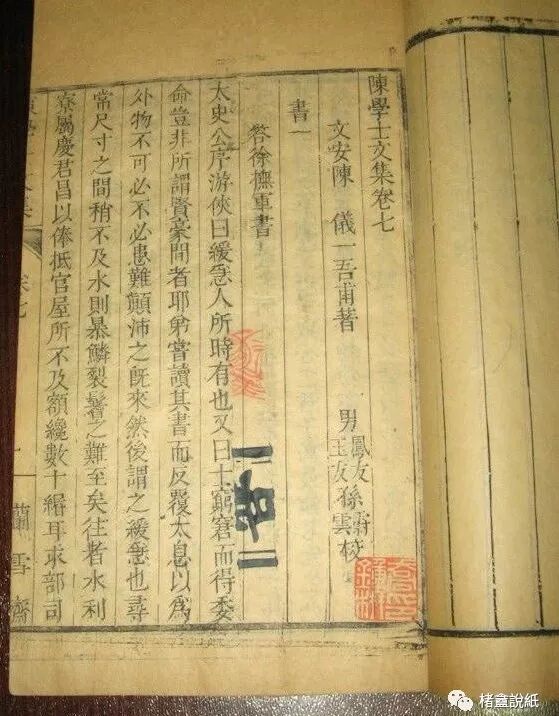 陳學士文集卷七
文安陳儀一吾甫著
男鳳友孫霨校
玉友雲
書一
答徐撫軍書
太史公序游俠曰緩急人所時有也又曰士窮窘而得委
命豈非所謂賢豪間者耶弟嘗讀其書而反覆太息以爲
外物不可必不必患難顛沛之旣來然後謂之緩急也尋
常尺寸之間稍不及水則暴鱗裂鬐之難至矣往者水利
寮屬慶君昌以俸抵官屋所不及額纔數十緡耳求部司
卷七
一
蘭雪齋
楮盦說紙